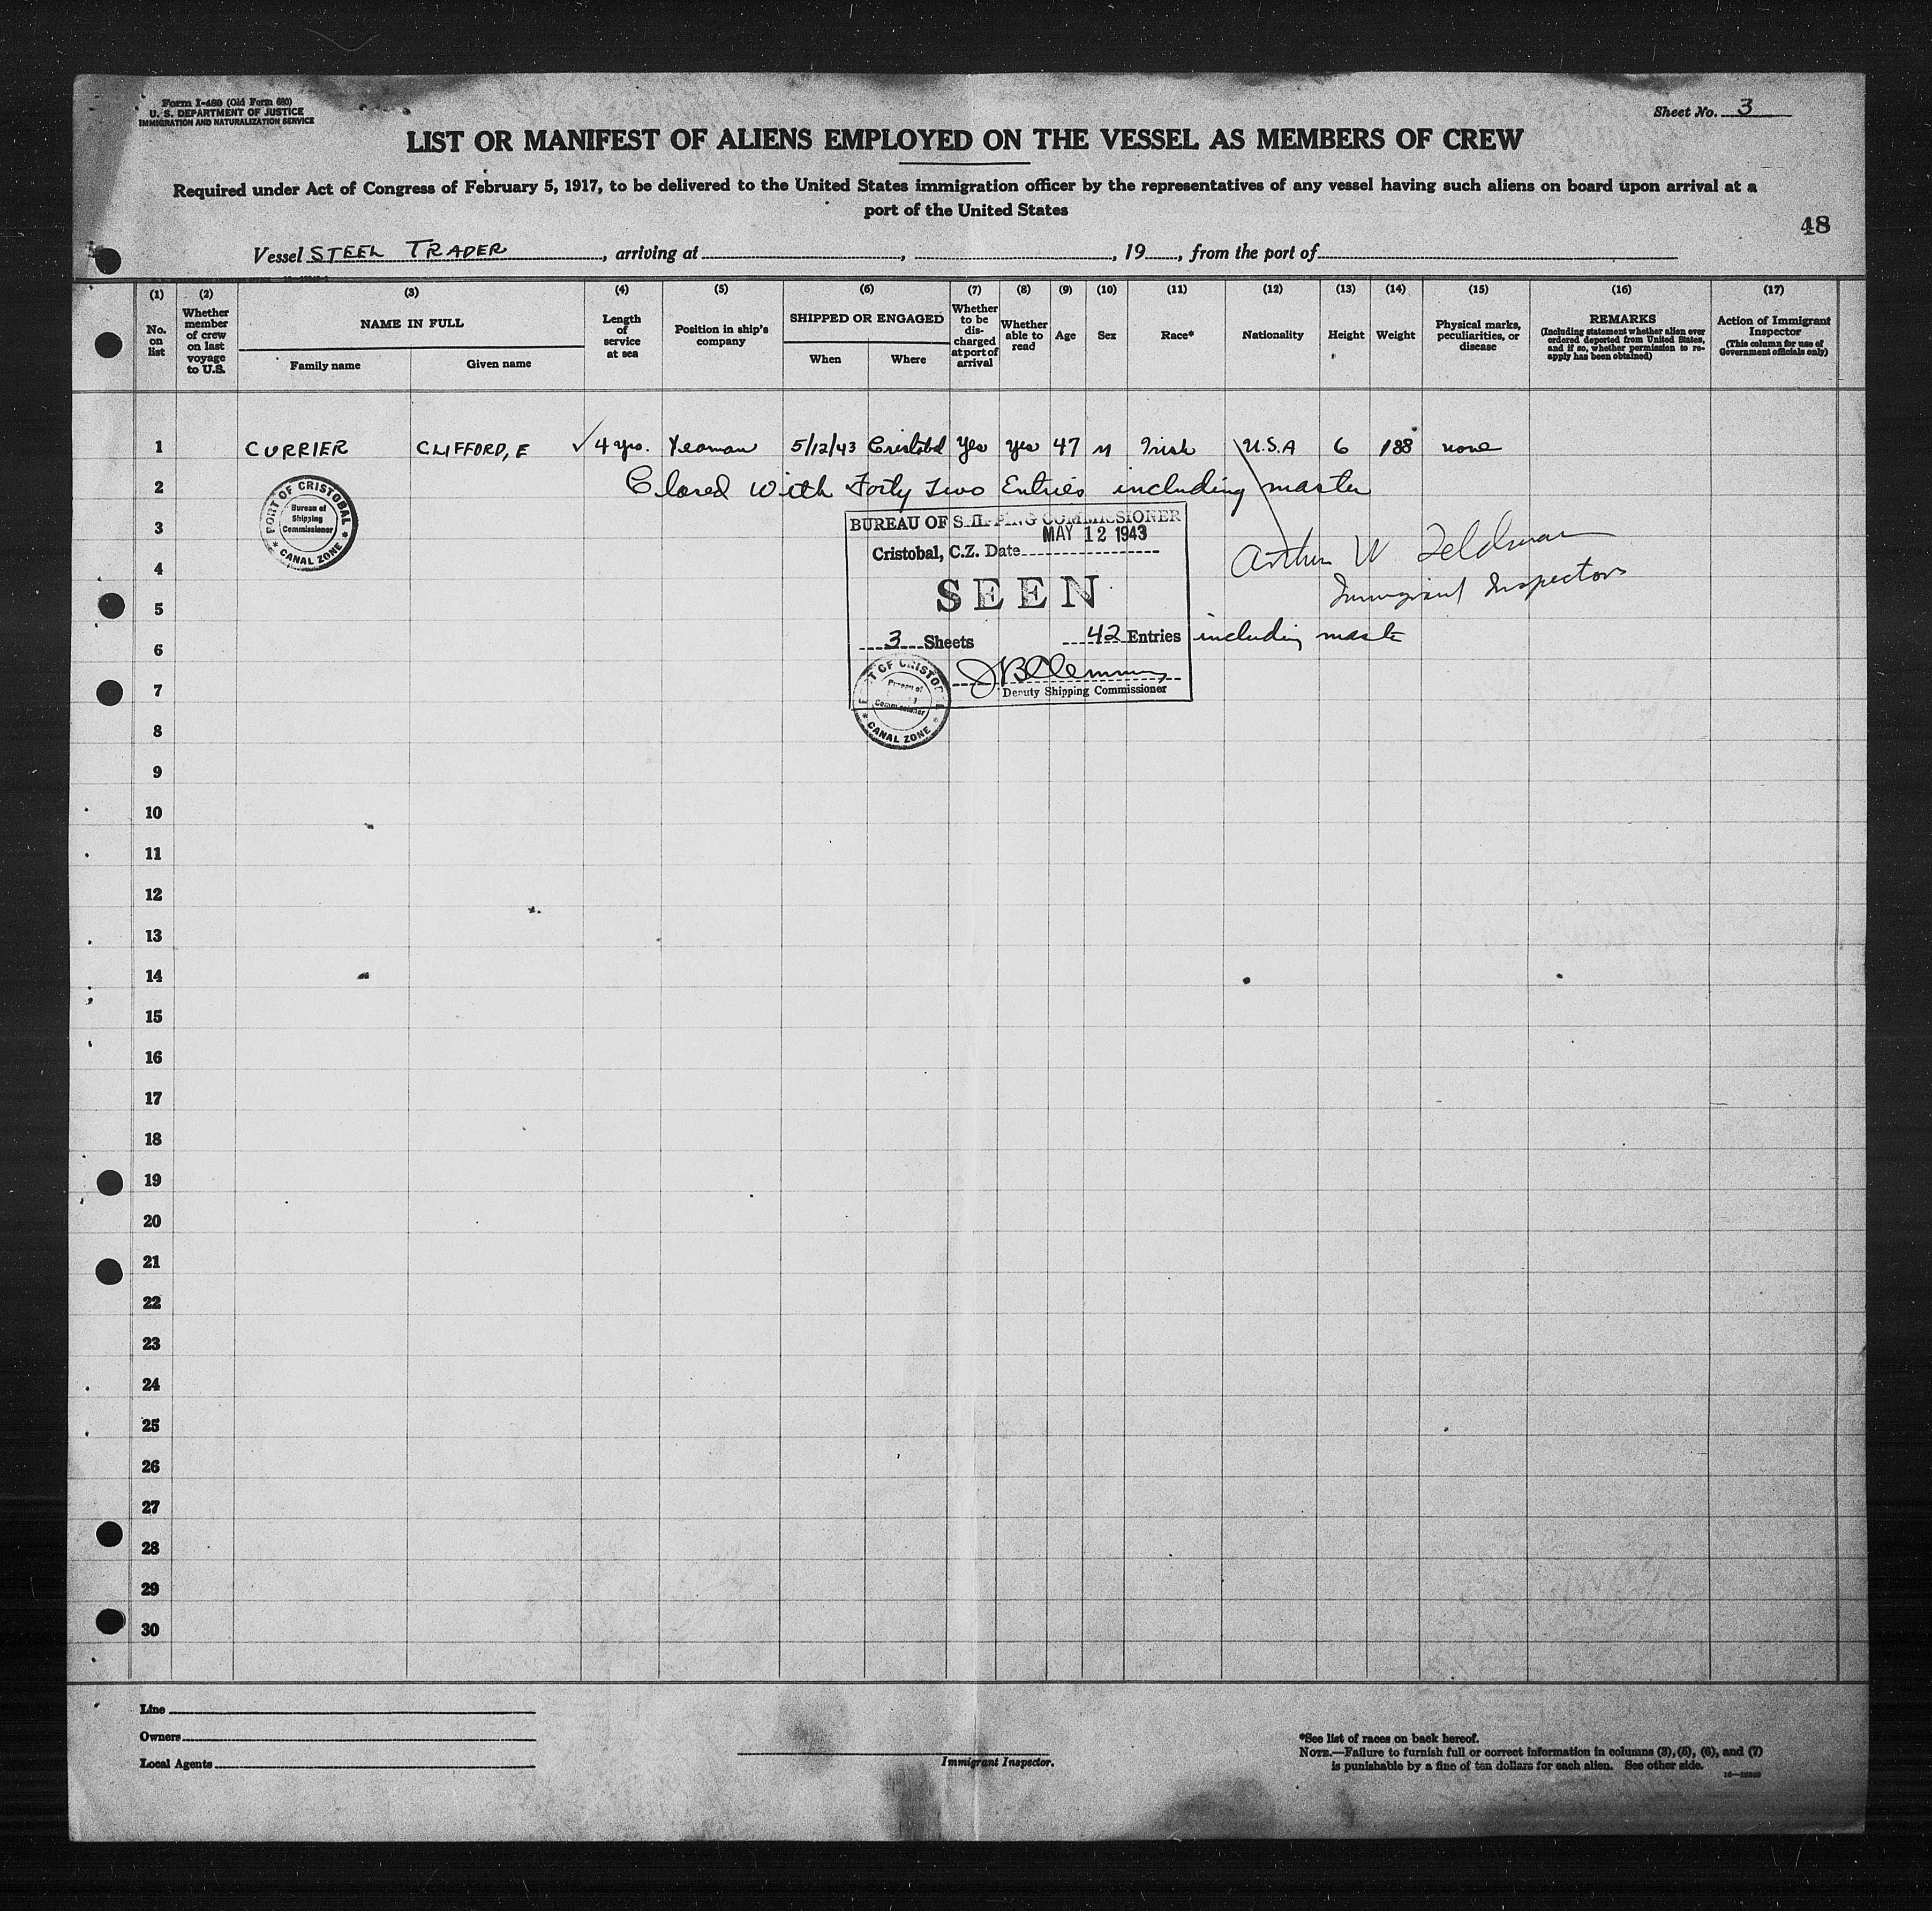 Form I-480 (Old Form 680)
U. S. DEPARTMENT OF JUSTICE
IMMIGRATION AND NATURALIZATION SERVICE
Sheet No. 3
LIST OR MANIFEST OF ALIENS EMPLOYED ON THE VESSEL AS MEMBERS OF CREW
Required under Act of Congress of February 5, 1917, to be delivered to the United States immigration officer by the representatives of any vessel having such aliens on board upon arrival at a
port of the United States
48
Vessel STEEL TRADER, arriving at , , 19 , from the port of
(1) No. on list
(2) Whether member of crew on last voyage to U.S.
(3) NAME IN FULL
Family name
Given name
(4) Length of service at sea
(5) Position in ship's company
(6) SHIPPED OR ENGAGED
When
Where
(7) Whether to be discharged at port of arrival
(8) Whether able to read
(9) Age
(10) Sex
(11) Race*
(12) Nationality
(13) Height
(14) Weight
(15) Physical marks, peculiarities, or disease
(16) REMARKS
(Including statement whether alien ever ordered deported from United States, and if so, whether permission to re-apply has been obtained)
(17) Action of Immigrant Inspector
(This column for use of Government officials only)
1 CURRIER CLIFFORD, E ✓ 4 yrs. Yeoman 5/12/43 Cristobal Yes yes 47 M Irish U.S.A 6 188 none
2 Closed with Forty Two Entries including master
PORT OF CRISTOBAL
Bureau of
Shipping
Commissioner
CANAL ZONE
3
BUREAU OF SHIPPING COMMISSIONER
MAY 12 1943
Cristobal, C.Z. Date
Arthur W Feldman
Immigrant Inspector
4
SEEN
5
3 Sheets 42 Entries including master
6
7
Deputy Shipping Commissioner
PORT OF CRISTOBAL
Bureau of
Commissioner
CANAL ZONE
8
9
10
11
12
13
14
15
16
17
18
19
20
21
22
23
24
25
26
27
28
29
30
Line
Owners
Local Agents
Immigrant Inspector.
*See list of races on back hereof.
NOTE.—Failure to furnish full or correct information in columns (3), (5), (6), and (7)
is punishable by a fine of ten dollars for each alien. See other side.